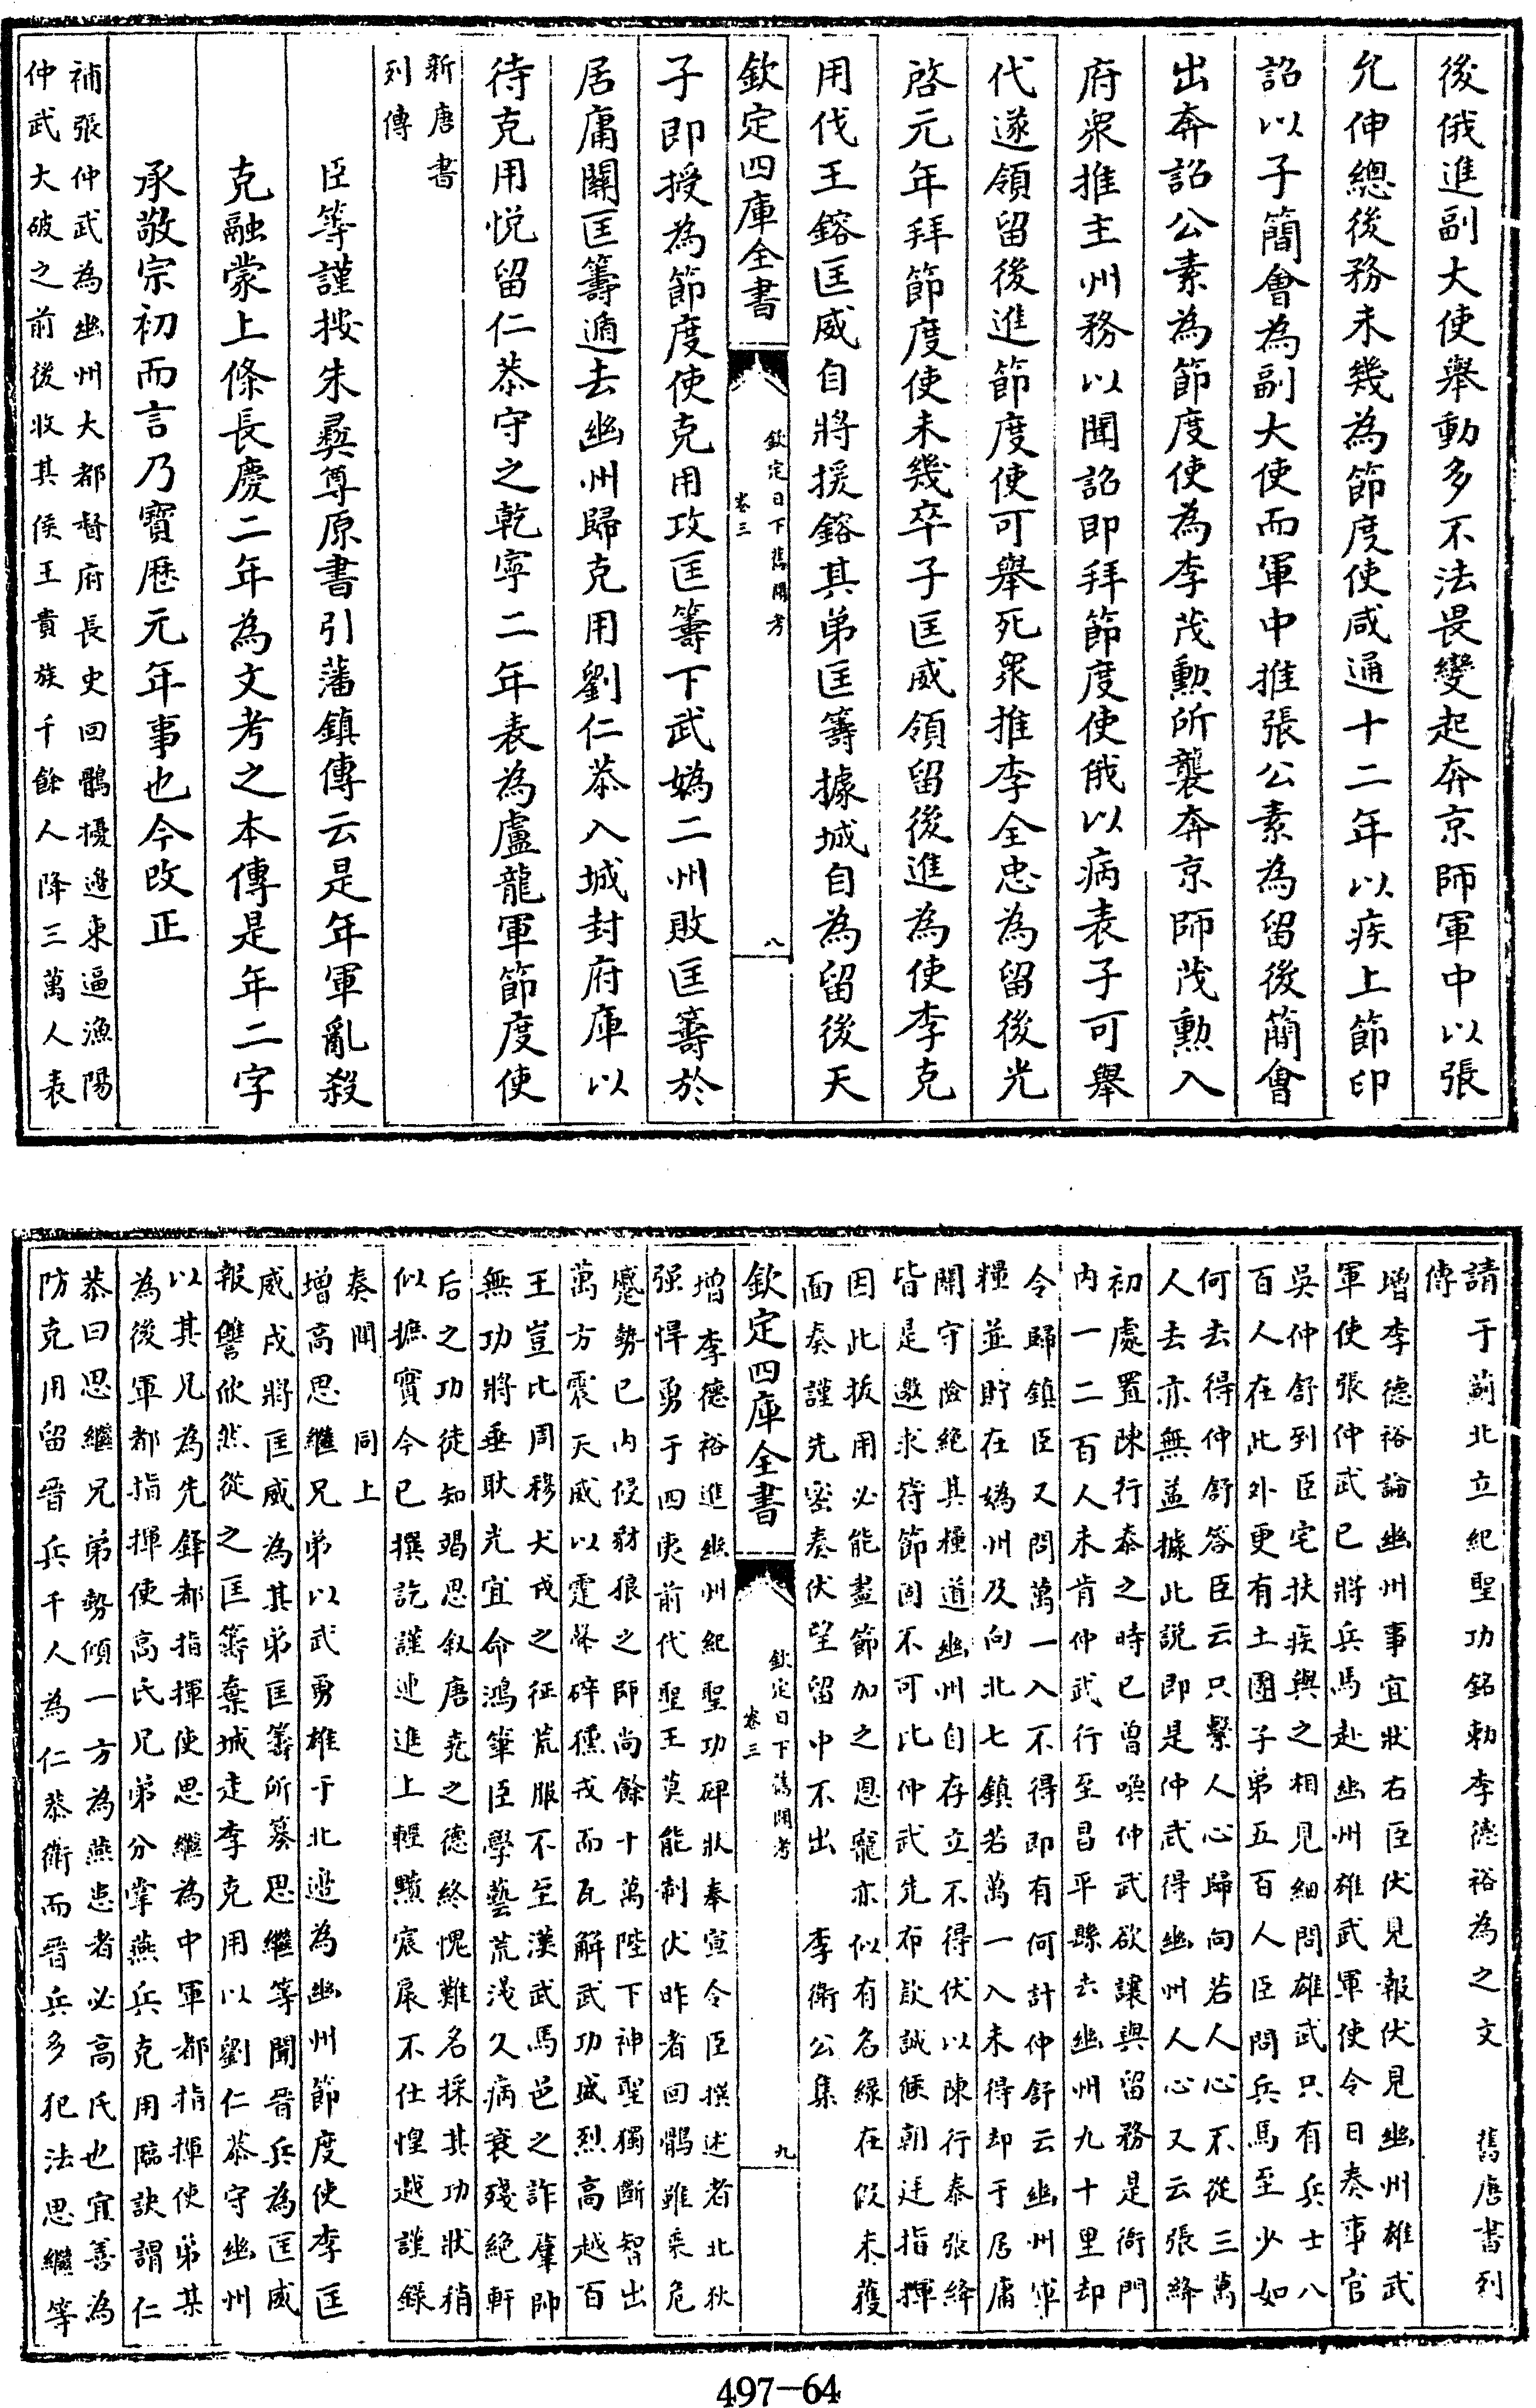 後俄進副大使舉動多不法畏變起奔京師軍中以張
允伸總後務未幾為節度使咸通十二年以疾上節印
詔以子簡會為副大使而軍中推張公素為留後簡會
出奔詔公素為節度使為李茂勲所襲奔京師茂勲入
府衆推主州務以聞詔即拜節度使俄以病表子可舉
代遂領留後進節度使可舉死衆推李全忠為留後光
啓元年拜節度使未幾卒子匡威領留後進為使李克
用伐王鎔匡威自將援鎔其弟匡籌據城自為留後天
欽定四庫全書
欽定日下舊聞考
卷三
八
子即授為節度使克用攻匡籌下武媯二州敗匡籌於
居庸關匡籌遁去幽州歸克用劉仁恭入城封府庫以
待克用悦留仁恭守之乾寧二年表為盧龍軍節度使
新唐書
列傳
臣等謹按朱彛尊原書引藩鎮傳云是年軍亂殺
克融蒙上條長慶二年為文考之本傳是年二字
承敬宗初而言乃寶歴元年事也今改正
補張仲武為幽州大都督府長史回鶻擾邉東逼漁陽
仲武大破之前後收其侯王貴族千餘人降三萬人表
請于薊北立紀聖功銘勅李德裕為之文　舊唐書列
傳
增李德裕論幽州事宜狀右臣伏見報伏見幽州雄武
軍使張仲武已將兵馬赴幽州雄武軍使令日奏事官
吳仲舒到臣宅扶疾與之相見細問雄武只有兵士八
百人在此外更有土團子弟五百人臣問兵馬至少如
何去得仲舒答臣云只繫人心歸向若人心不從三萬
人去亦無益據此説即是仲武得幽州人心又云張絳
初處置陳行泰之時已曾喚仲武欲讓與留務是衙門
内一二百人未肯仲武行至昌平縣去幽州九十里却
令歸鎮臣又問萬一入不得即有何計仲舒云幽州軍
糧並貯在媯州及向北七鎮若萬一入未得却于居庸
關守險絶其糧道幽州自存立不得伏以陳行泰張絳
皆是邀求符節固不可比仲武先布欵誠候朝廷指揮
因此拔用必能盡節加之恩寵亦似有名縁在假未獲
面奏謹先密奏伏望留中不出　李衛公集
欽定四庫全書
欽定日下舊聞考
卷三
九
增李德裕進幽州紀聖功碑狀奉宣令臣撰述者北狄
强悍勇于四夷前代聖王莫能制伏昨者回鶻雖乘危
蹙勢已内侵豺狼之師尚餘十萬陛下神聖獨斷智出
萬方震天威以霆聲碎獯戎而瓦解武功盛烈高越百
王豈比周穆犬戎之征荒服不至漢武馬邑之詐單帥
無功將垂耿光宜命鴻筆臣學藝荒淺久病衰殘絶軒
后之功徒知竭思叙唐堯之德終愧難名採其功狀稍
似摭實今已撰訖謹連進上輕黷宸扆不仕惶越謹錄
奏聞　同上
增高思繼兄弟以武勇雄于北邉為幽州節度使李匡
威戍將匡威為其弟匡籌所簒思繼等聞晉兵為匡威
報讐欣然從之匡籌棄城走李克用以劉仁恭守幽州
以其兄為先鋒都指揮使思繼為中軍都指揮使弟某
為後軍都指揮使高氏兄弟分掌燕兵克用臨訣謂仁
恭曰思繼兄弟勢傾一方為燕患者必高氏也宜善為
防克用留晉兵千人為仁恭衛而晉兵多犯法思繼等
497-64